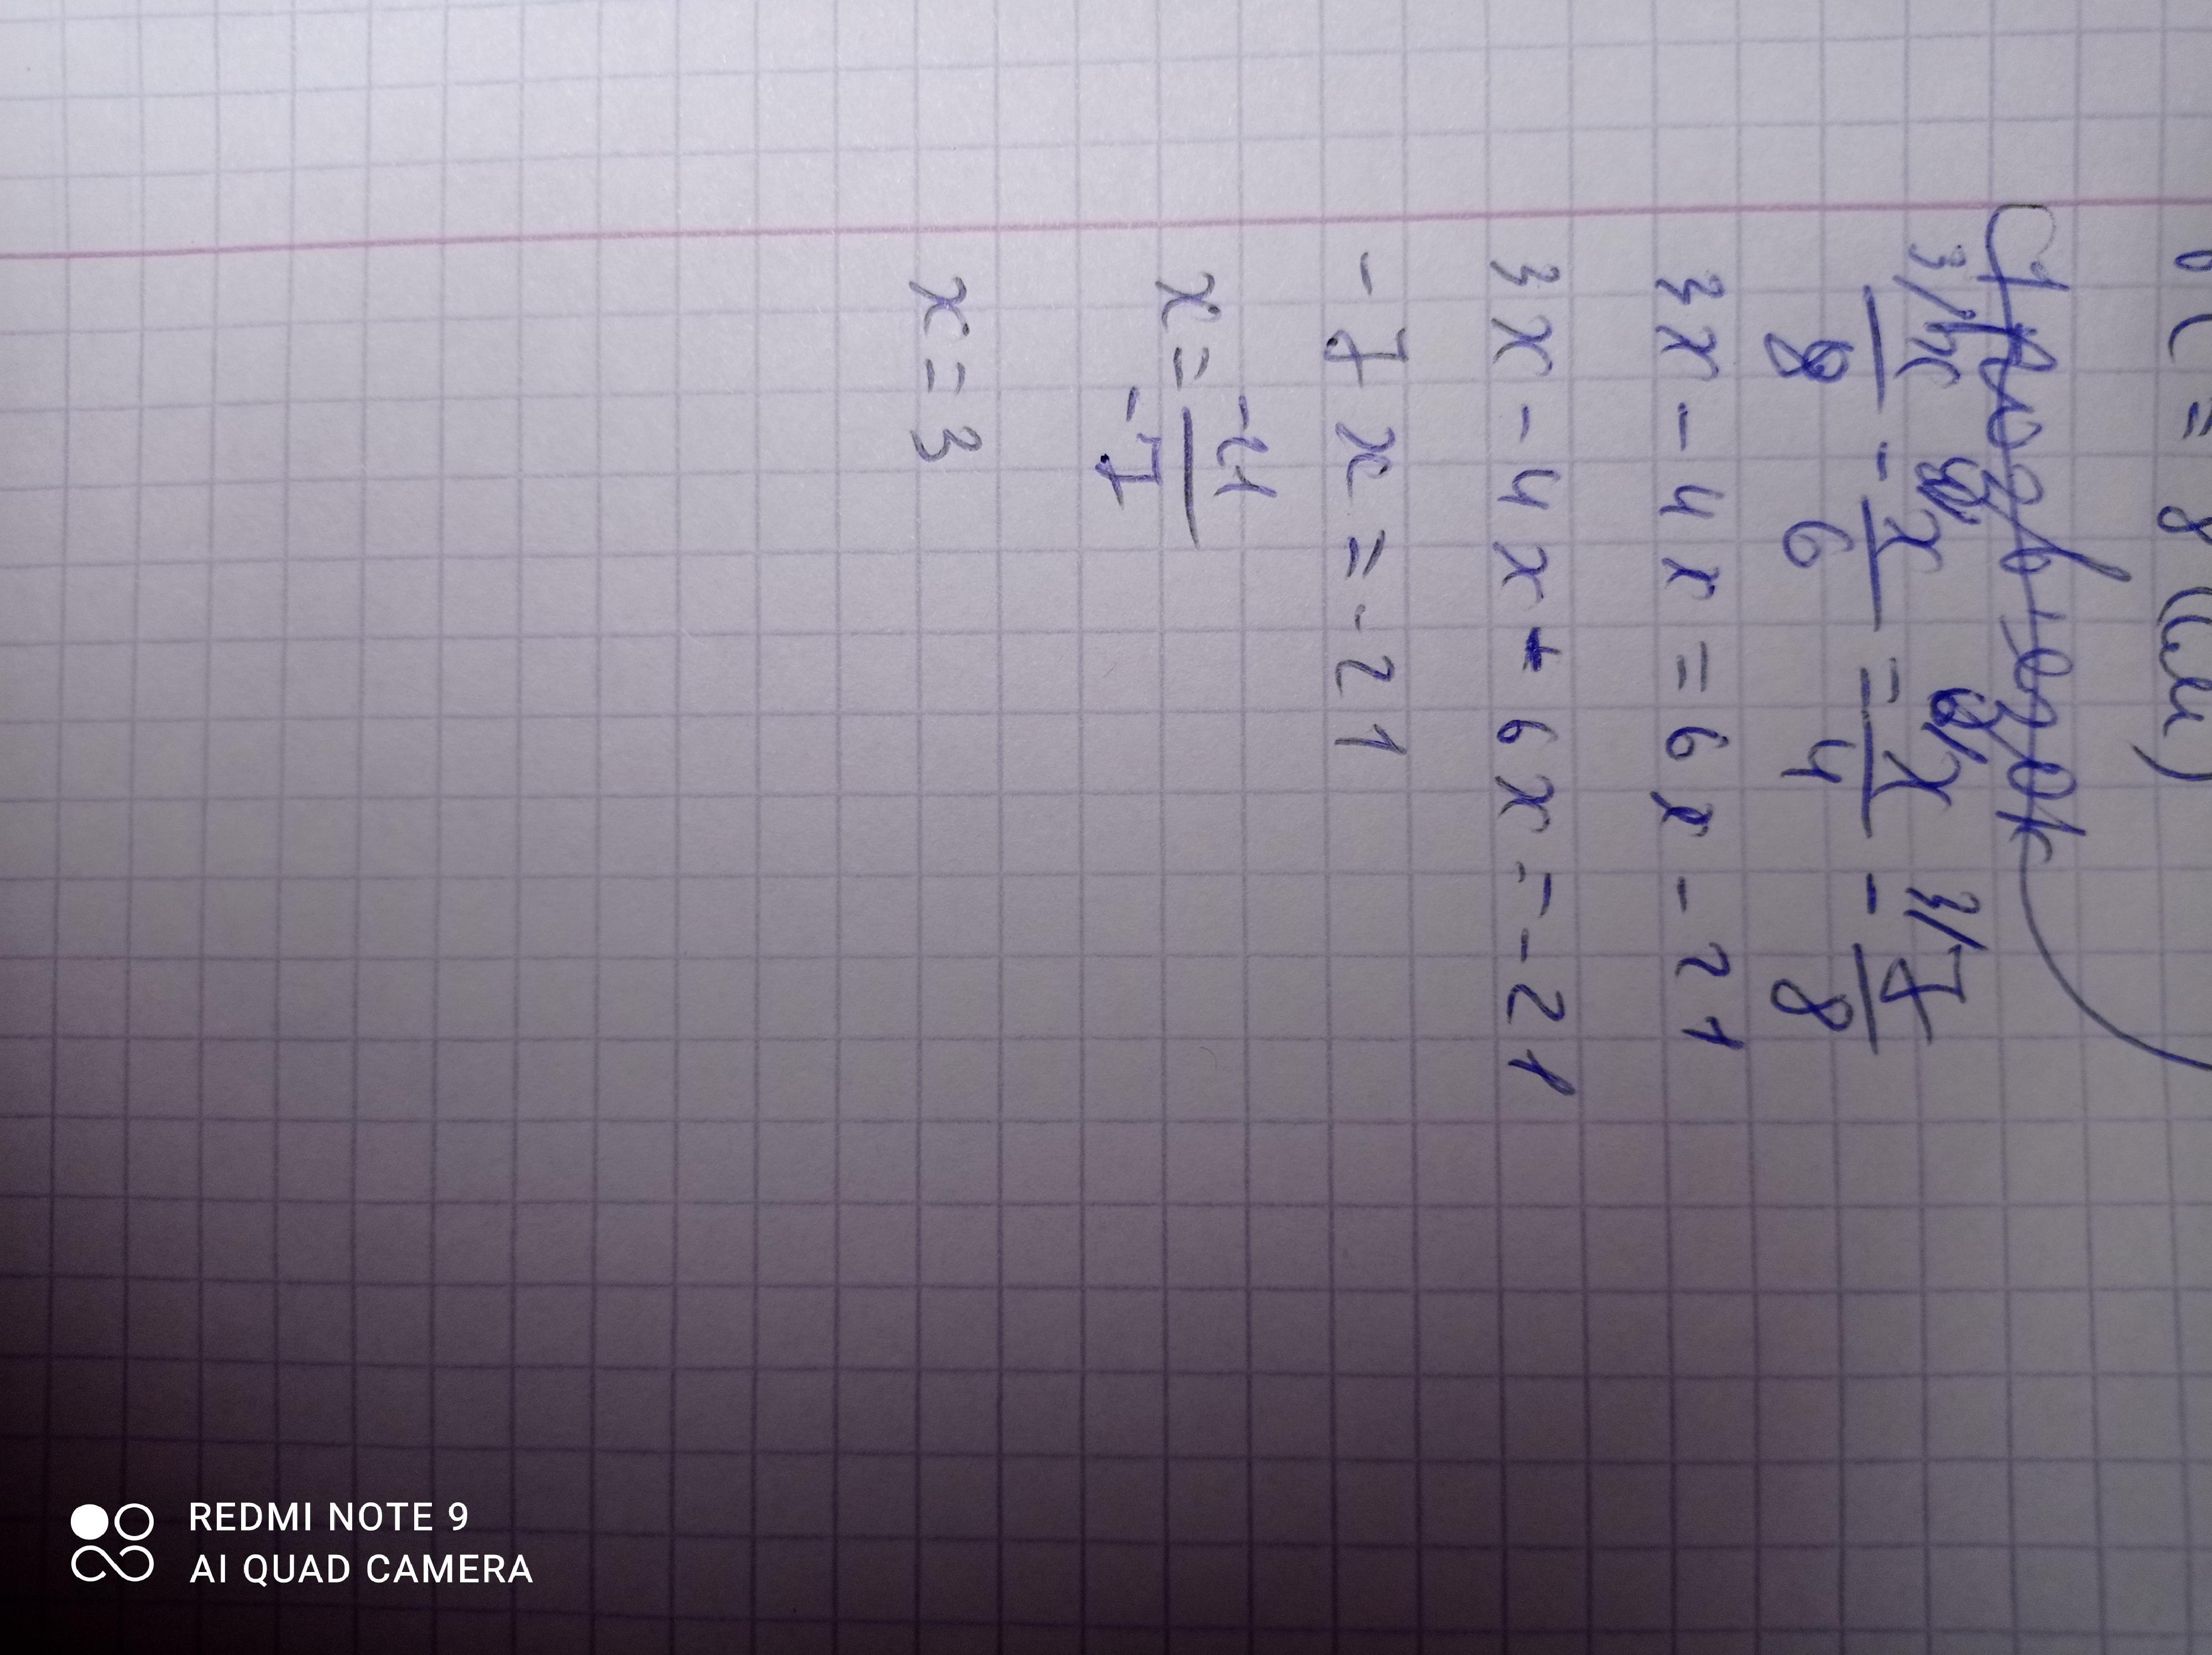 3/x/8 - 4/x/6 = 6/x/4 - 3/7/8
3x - 4x = 6x - 21
3x - 4x + 6x = - 21
- 7x = - 21
x = -21/-7
x = 3
REDMI NOTE 9
AI QUAD CAMERA